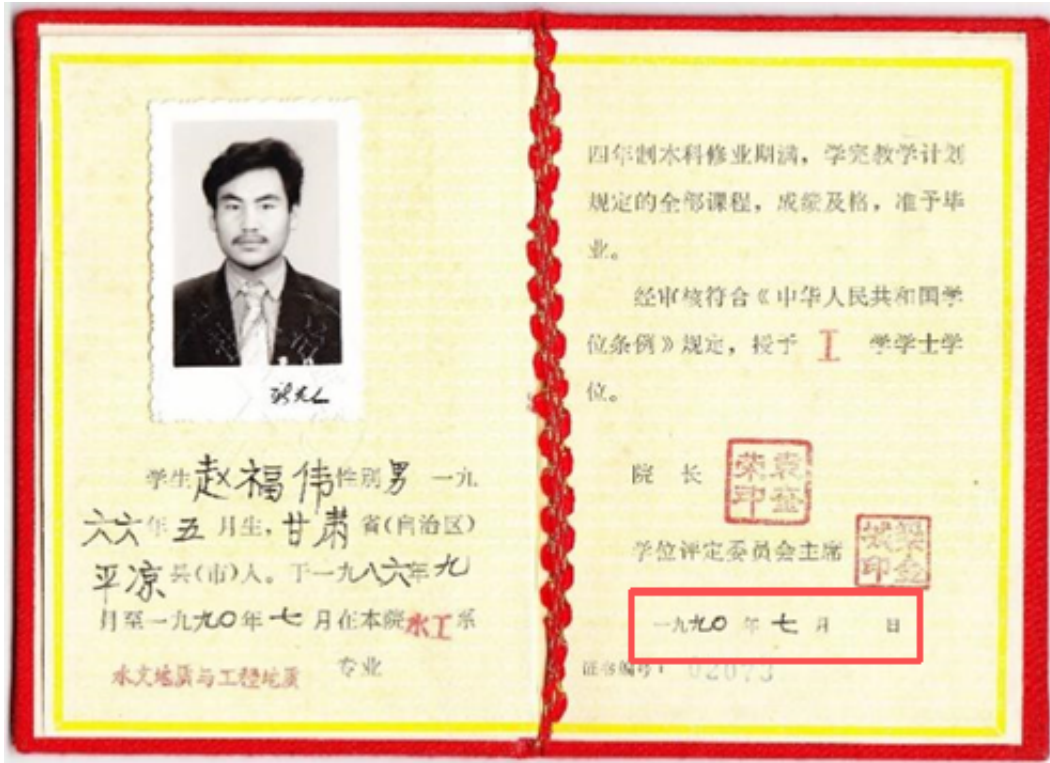 学生赵福伟性别男 一九
六六年五月生，甘肃省(自治区)
平凉县(市)人。于一九八六年九
月至一九九〇年七月在本院水工系
水文地质与工程地质 专业
四年制本科修业期满，学完教学计划
规定的全部课程，成绩及格，准予毕
业。
经审核符合《中华人民共和国学
位条例》规定，授予 工 学学士学
位。
院 长
学位评定委员会主席
一九九〇年七月 日
证书编号： 02073